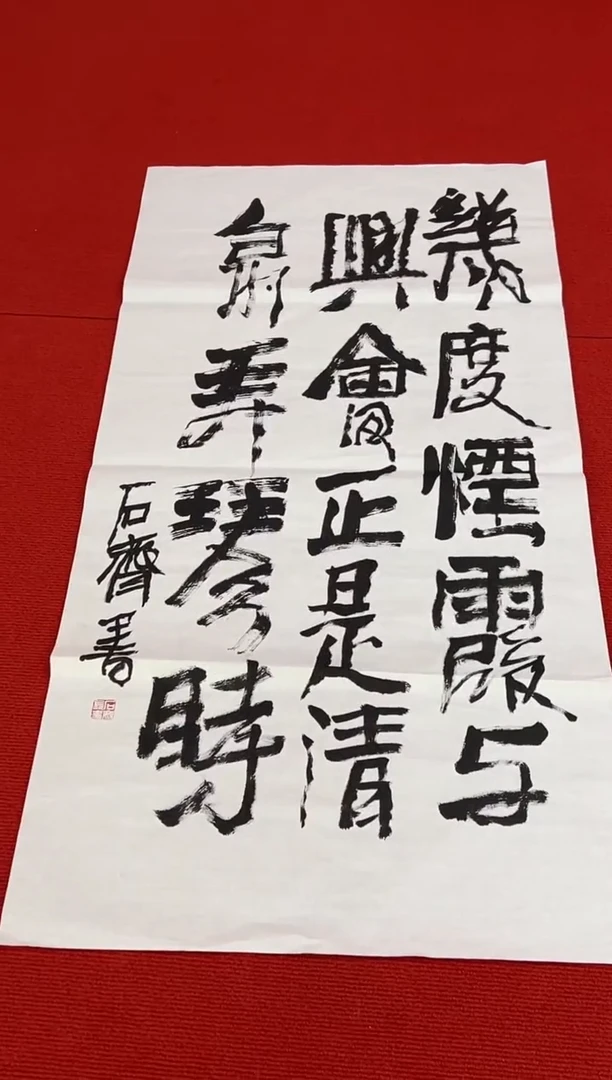 幾度煙霞与
興會正是清
泉弄琴時
石齊書